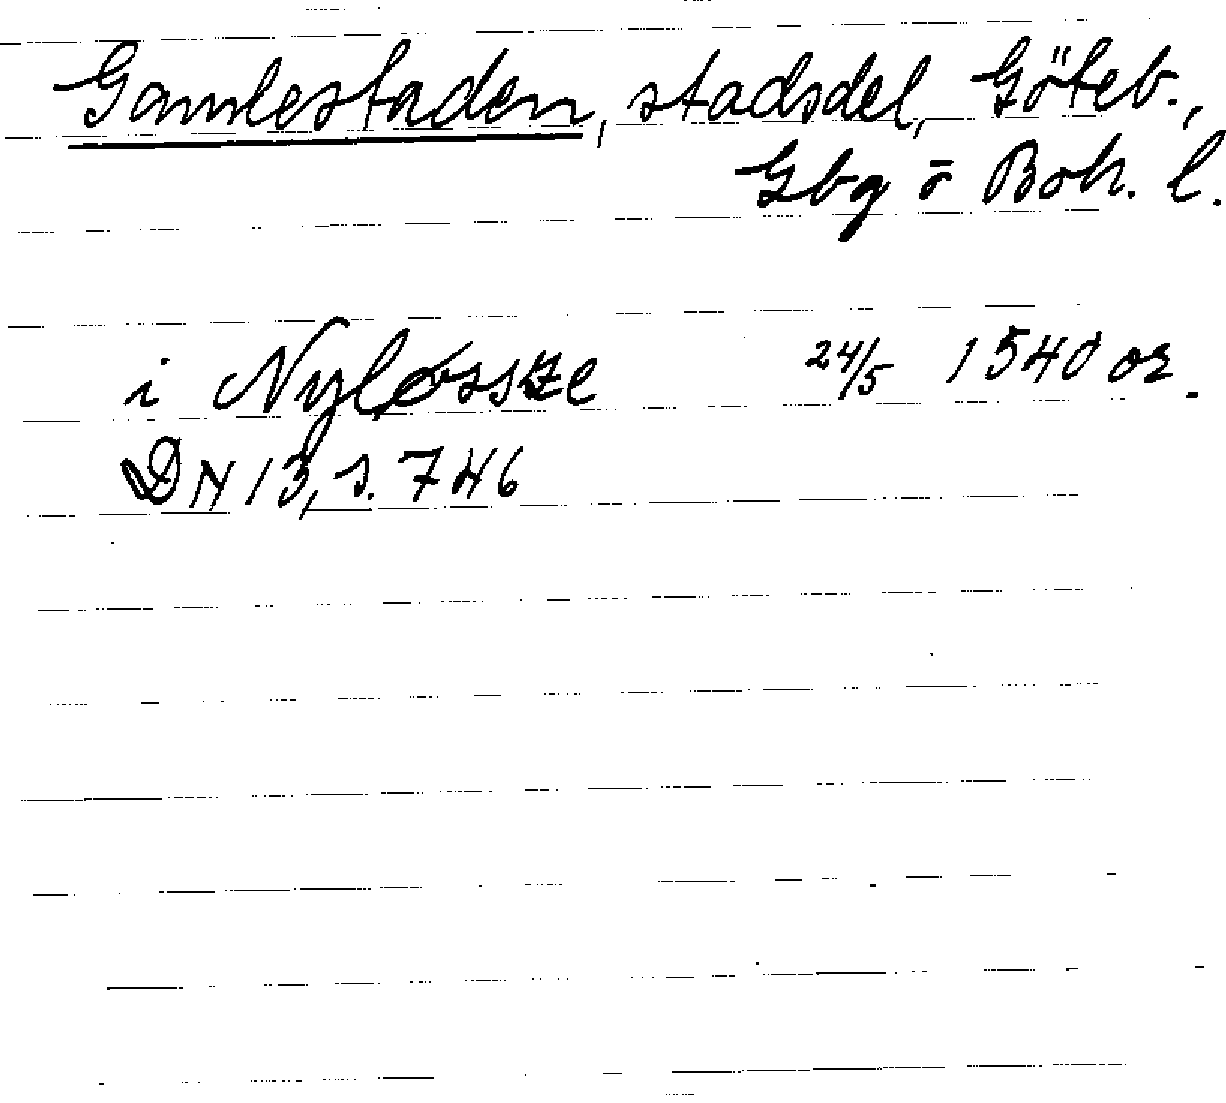 Gamlestaden, stadsdel, Göteb.,
Gbg o Boh. l.
i Nyløssze 24/5 1540 or.
DN 13, s. 746